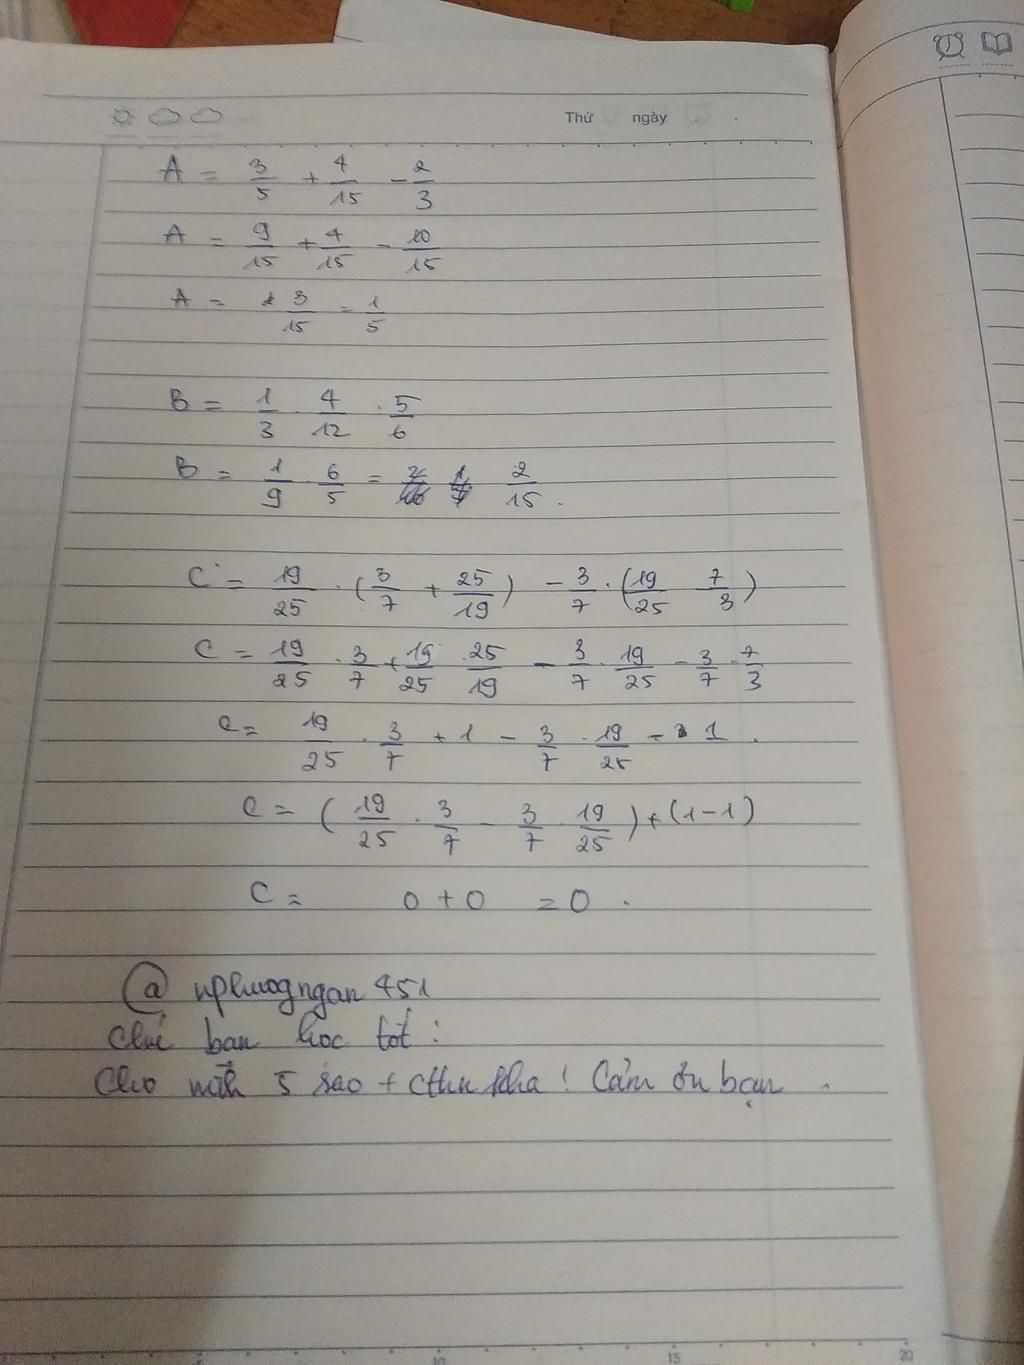 Thứ ngày
A = 3/5 + 4/15 - 2/3
A = 9/15 + 4/15 - 10/15
A = 3/15 = 1/5
B = 1/3 . 4/12 . 5/6
B = 1/9 . 6/5 = 2/15 .
C = 19/25 . (3/7 + 25/19) - 3/7 . (19/25 7/3)
C = 19/25 . 3/7 + 19/25 . 25/19 - 3/7 . 19/25 - 3/7 . 7/3
C = 19/25 . 3/7 + 1 - 3/7 . 19/25 - 1 .
C = (19/25 . 3/7 - 3/7 . 19/25) + (1-1)
C = 0 + 0 = 0 .
@ nphuogngan451
Chú bạn học tốt :
Cho mih 5 sao + cthn nha ! Cảm ơn bạn .
10 15 20